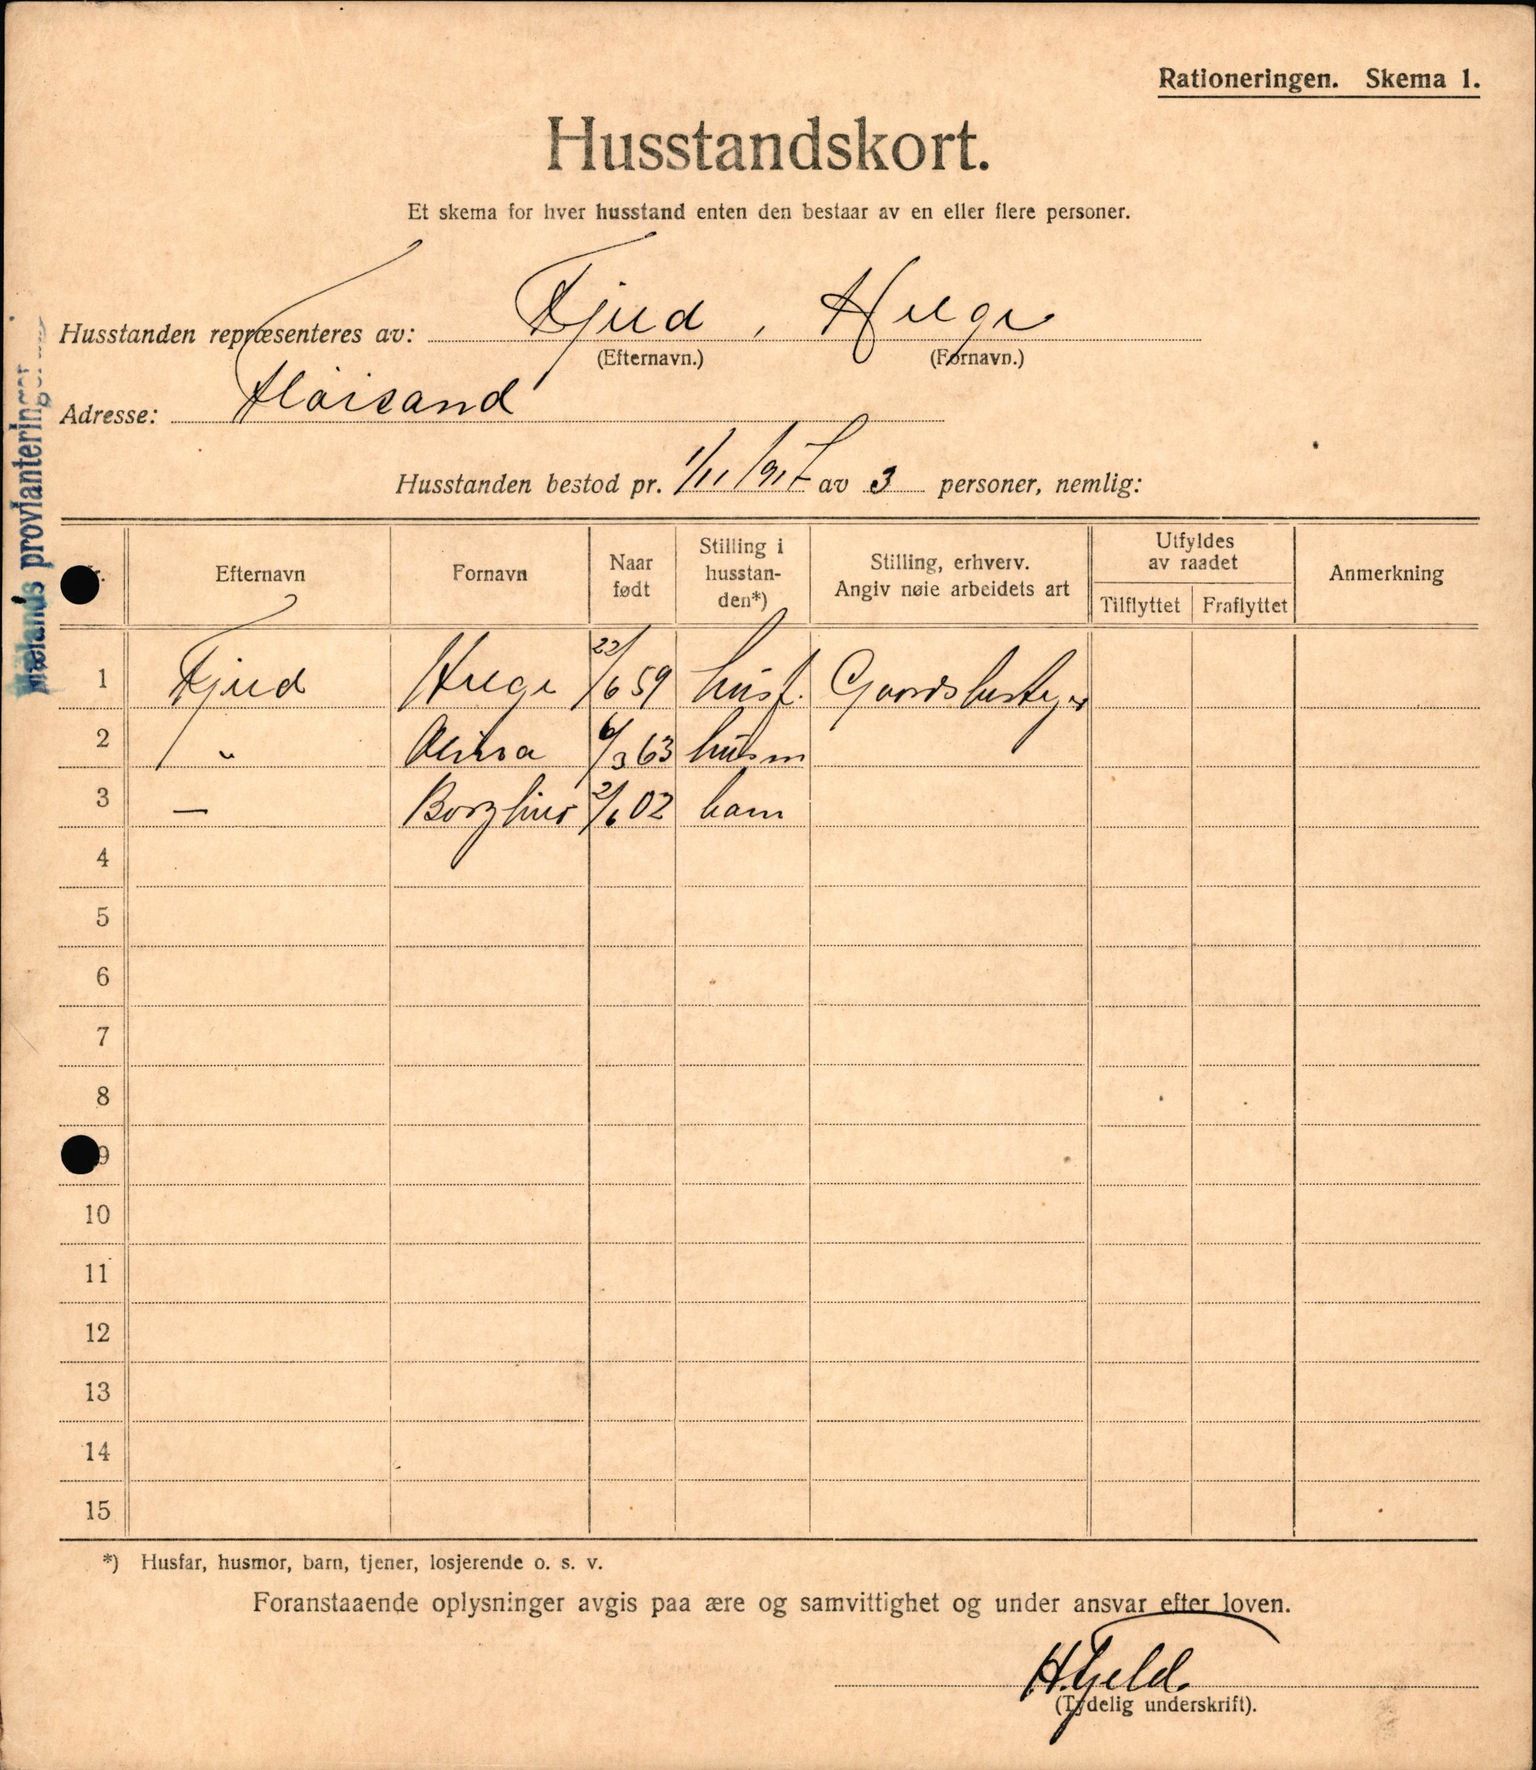 Rationeringen. Skema 1.
Husstandskort.
Et skema for hver husstand enten den bestaar av en eller flere personer.
Husstanden repræsenteres av: Fjeld, Helge
(Efternavn.) (Fornavn.)
Adresse: Fløisand
Husstanden bestod pr. 1/11 1917 av 3 personer, nemlig:
Mælands provianterings
Efternavn Fornavn Naar født Stilling i husstan-den*) Stilling, erhverv. Angiv nøie arbeidets art Utfyldes av raadet Tilflyttet Fraflyttet Anmerkning
1 Fjeld Helge 22/6 59 husf. Gaardsbestyrer
2 " 6/3 63 husm
3 — 2/6 02 barn
4
5
6
7
8
9
10
11
12
13
14
15
*) Husfar, husmor, barn, tjener, losjerende o. s. v.
Foranstaaende oplysninger avgis paa ære og samvittighet og under ansvar efter loven.
H. Fjeld.
(Tydelig underskrift).